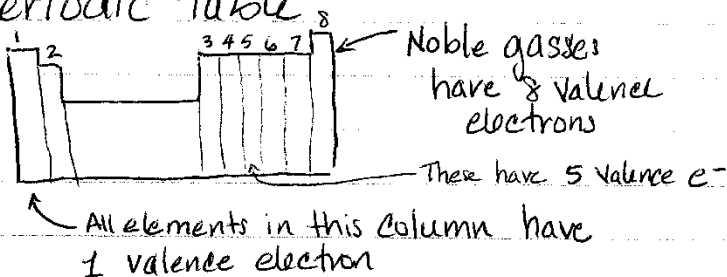 eriodic Table
1 2 3 4 5 6 7 8
Noble gasses
have 8 valence
electrons
These have 5 valence e-
All elements in this column have
1 valence electron